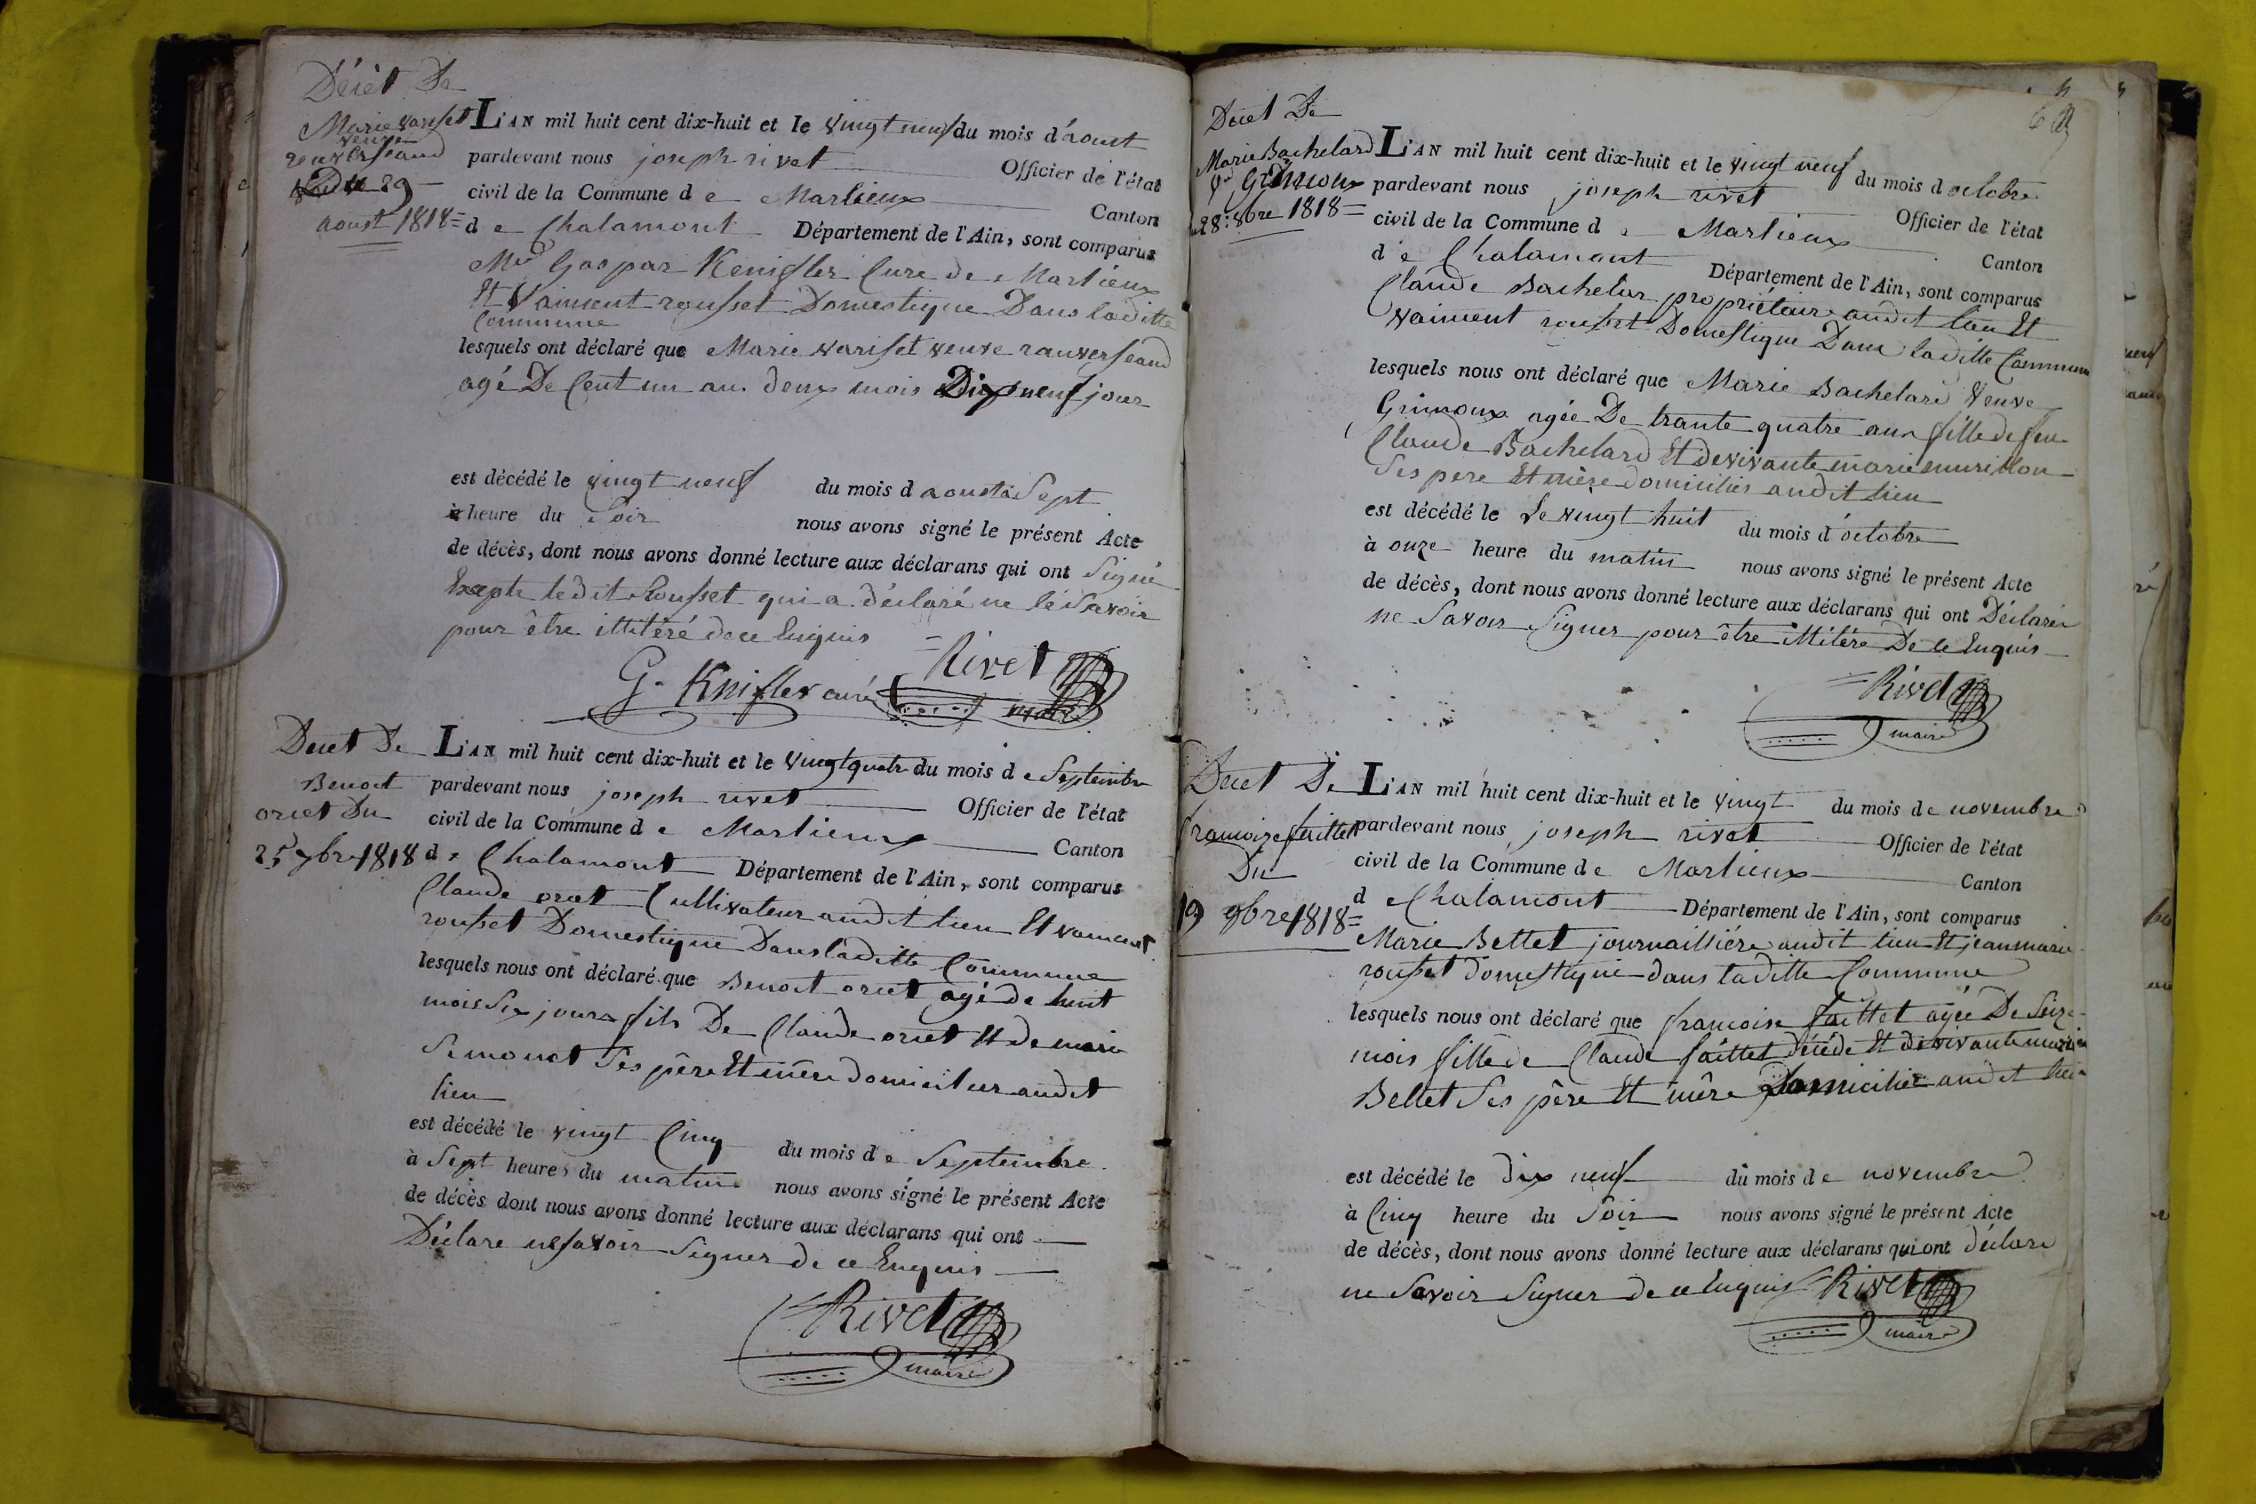 Décèt De
Marie variset
veuve
ranverseaud
Du 29
aoust 1818=
L'AN mil huit cent dix-huit et le vingt neuf du mois d'aoust
pardevant nous joseph rivet Officier de l'état
civil de la Commune de Marlieux Canton
de Chalamont Département de l'Ain, sont comparus
Gaspar Kenifler Cure de Marlieux
Et Vaincent rousset Domestique Dans laditte
Commune
lesquels ont déclaré que Marie variset veuve ranverseaud
agé De Cent un an deux mois Dix neuf jour
est décédé le vingt neuf du mois d aoust à Sept
heure du Soir nous avons signé le présent Acte
de décès, dont nous avons donné lecture aux déclarans qui ont Signé
Excepte ledit Rousset qui a déclaré ne le Savoir
pour être ittitéré de ce Enquis
G. Knifler curé Rivet
maire
Decet De
Benoit
oriet Du
25 7bre 1818
L'AN mil huit cent dix-huit et le vingt quatre du mois de Septembre
pardevant nous joseph rivet Officier de l'état
civil de la Commune de Marlieux Canton
de Chalamont Département de l'Ain, sont comparus
Claude oriet Cultivateur audit lieu Et vaincent
rousset Domestique Dans laditte Commune
lesquels nous ont déclaré que Benoit oriet agé de huit
mois Six jours fils De Claude oriet Et de marie
Simonet Ses père Et mère domicilier audit
lieu
est décédé le vingt Cinq du mois de Septembre
à Sept heures du matin nous avons signé le présent Acte
de décès dont nous avons donné lecture aux déclarans qui ont
Déclare ne savoir Signer de ce Enquis
Rivet
maire
Decet De
Marie Bachelard
Ve Grimoux
28: 8bre 1818=
L'AN mil huit cent dix-huit et le vingt neuf du mois d octobre
pardevant nous joseph rivet Officier de l'état
civil de la Commune de Marlieux Canton
de Chalamont Département de l'Ain, sont comparus
Claude Bachelar propriétaire audit lieu Et
vaincent rousset Domestique Dans laditte Commune
lesquels nous ont déclaré que Marie Bachelard Veuve
Grimoux agée De trante quatre ans fille de feu
Claude Bachelard Et de vivante marie murillon
Ses pere Et mère domicilies audit lieu
est décédé le Le vingt huit du mois d'octobre
à onze heure du matin nous avons signé le présent Acte
de décès, dont nous avons donné lecture aux déclarans qui ont Déclaré
ne Savoir Signer pour être ittitéré De ce Enquis
Rivet
maire
Decet De
francoise faittet
Du
19 9bre 1818=
L'AN mil huit cent dix-huit et le vingt du mois de novembre
pardevant nous joseph rivet Officier de l'état
civil de la Commune de Marlieux Canton
d Chalamont Département de l'Ain, sont comparus
Marie Bettet journaillière audit lieu Et jean marie
rousset domestique dans laditte Commune
lesquels nous ont déclaré que francoise faittet agée De Seize
mois fille de Claude faittet décédé Et de vivante
Bellet Ses père Et mère Domicilier audit lieu
est décédé le dix neuf du mois de novembre
à Cinq heure du Soir nous avons signé le présent Acte
de décès, dont nous avons donné lecture aux déclarans qui ont déclaré
ne Savoir Signer de ce Enquis Rivet
maire